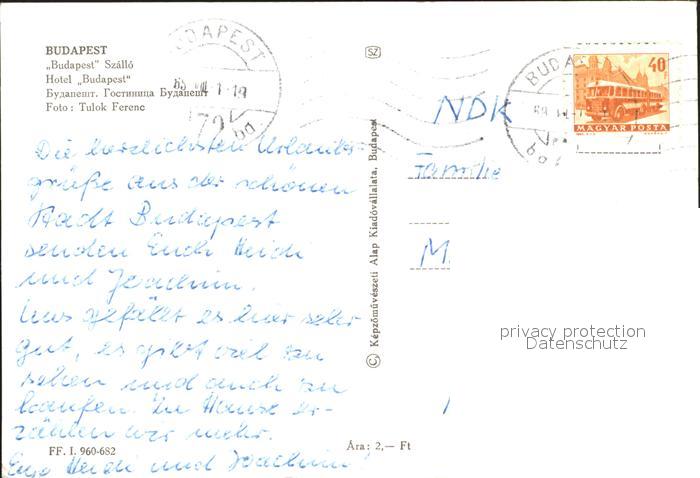 BUDAPEST
„Budapest” Szálló
Hotel „Budapest“
Будапешт. Гостиница Будапешт
Foto : Tulok Ferenc
SZ
BUDAPEST
72
BUDA
40f
MAGYAR POSTA
NDK
Familie
M.
Die herzlichsten Urlaubs-
grüße aus der schönen
Stadt Budapest
senden Euch Heidi
und Joachim.
Uns gefällt es hier sehr
gut, es gibt viel zu
sehen und auch zu
kaufen. Zu Hause er-
zählen wir mehr.
Eure Heidi und Joachim!
© Képzőművészeti Alap Kiadóvállalata, Budapest
privacy protection
Datenschutz
FF. I. 960-682
Ára: 2,— Ft